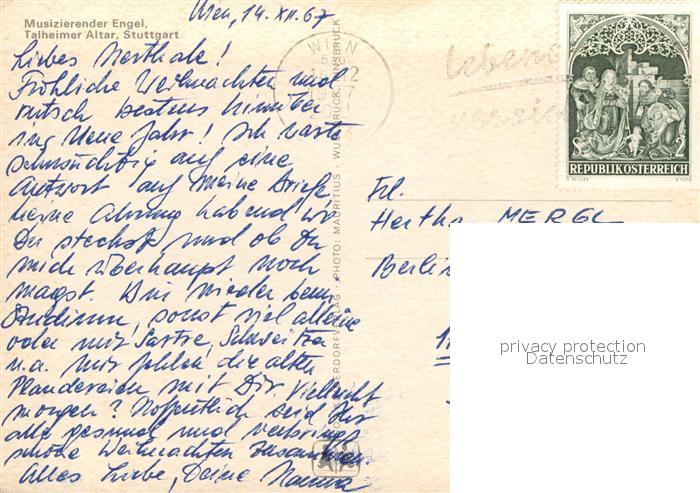 Musizierender Engel,
Talheimer Altar, Stuttgart
Wien, 14. XII. 67
Liebes Herthale!
Fröhliche Weihnachten und
rutsch bestens hinüber
ins Neue Jahr! Ich warte
sehnsüchtig auf eine
Antwort auf meine Briefe
keine Ahnung habend wo
Du steckst und ob Du
mich überhaupt noch
magst. Bin wieder beim
Studium, sonst viel alleine
oder mit Sartre, Schweitzer
u.a. Mir fehlen die alten
Plaudereien mit Dir. Vielleicht
morgen? Hoffentlich seid Ihr
alle gesund und verbringt
schöne Weihnachten zusammen.
Alles Liebe, Deine Hanna
WIEN
REPUBLIK ÖSTERREICH
2
PHOTO: MAURITIUS
INNSBRUCK
Frl.
Hertha MERGL
Berlin
privacy protection
Datenschutz